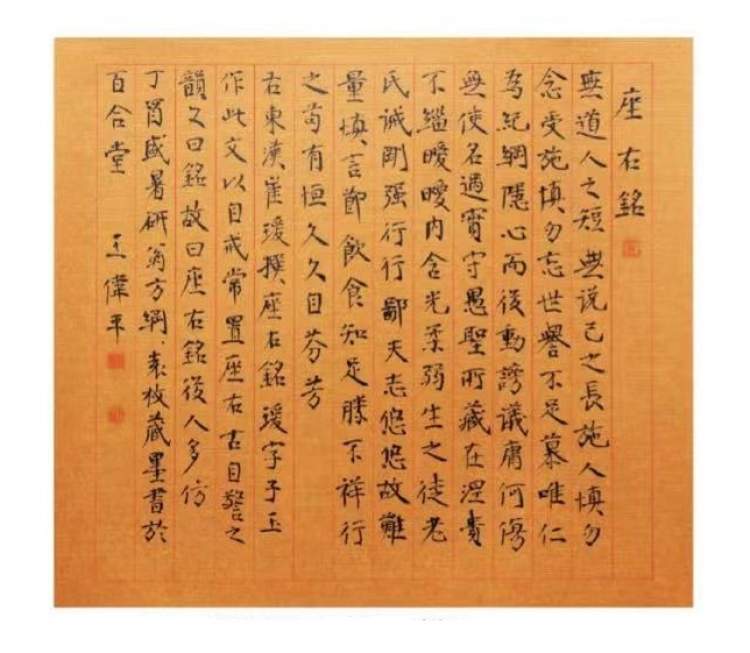 座右銘
無道人之短無说己之長施人慎勿
念受施慎勿忘世譽不足慕唯仁
為紀綱隱心而後動謗議庸何傷
無使名過實守愚聖所藏在涅貴
不緇曖曖内含光柔弱生之徒老
氏誡剛强行行鄙夫志悠悠故難
量慎言節飲食知足勝不祥行
之苟有恒久久自芬芳
右東漢崔瑗撰座右銘瑗字子玉
作此文以自戒常置座右古自警之
韻文曰銘故曰座右銘後人多仿
丁酉盛暑研翁方綱袁枚藏墨書於
百合堂 王偉平